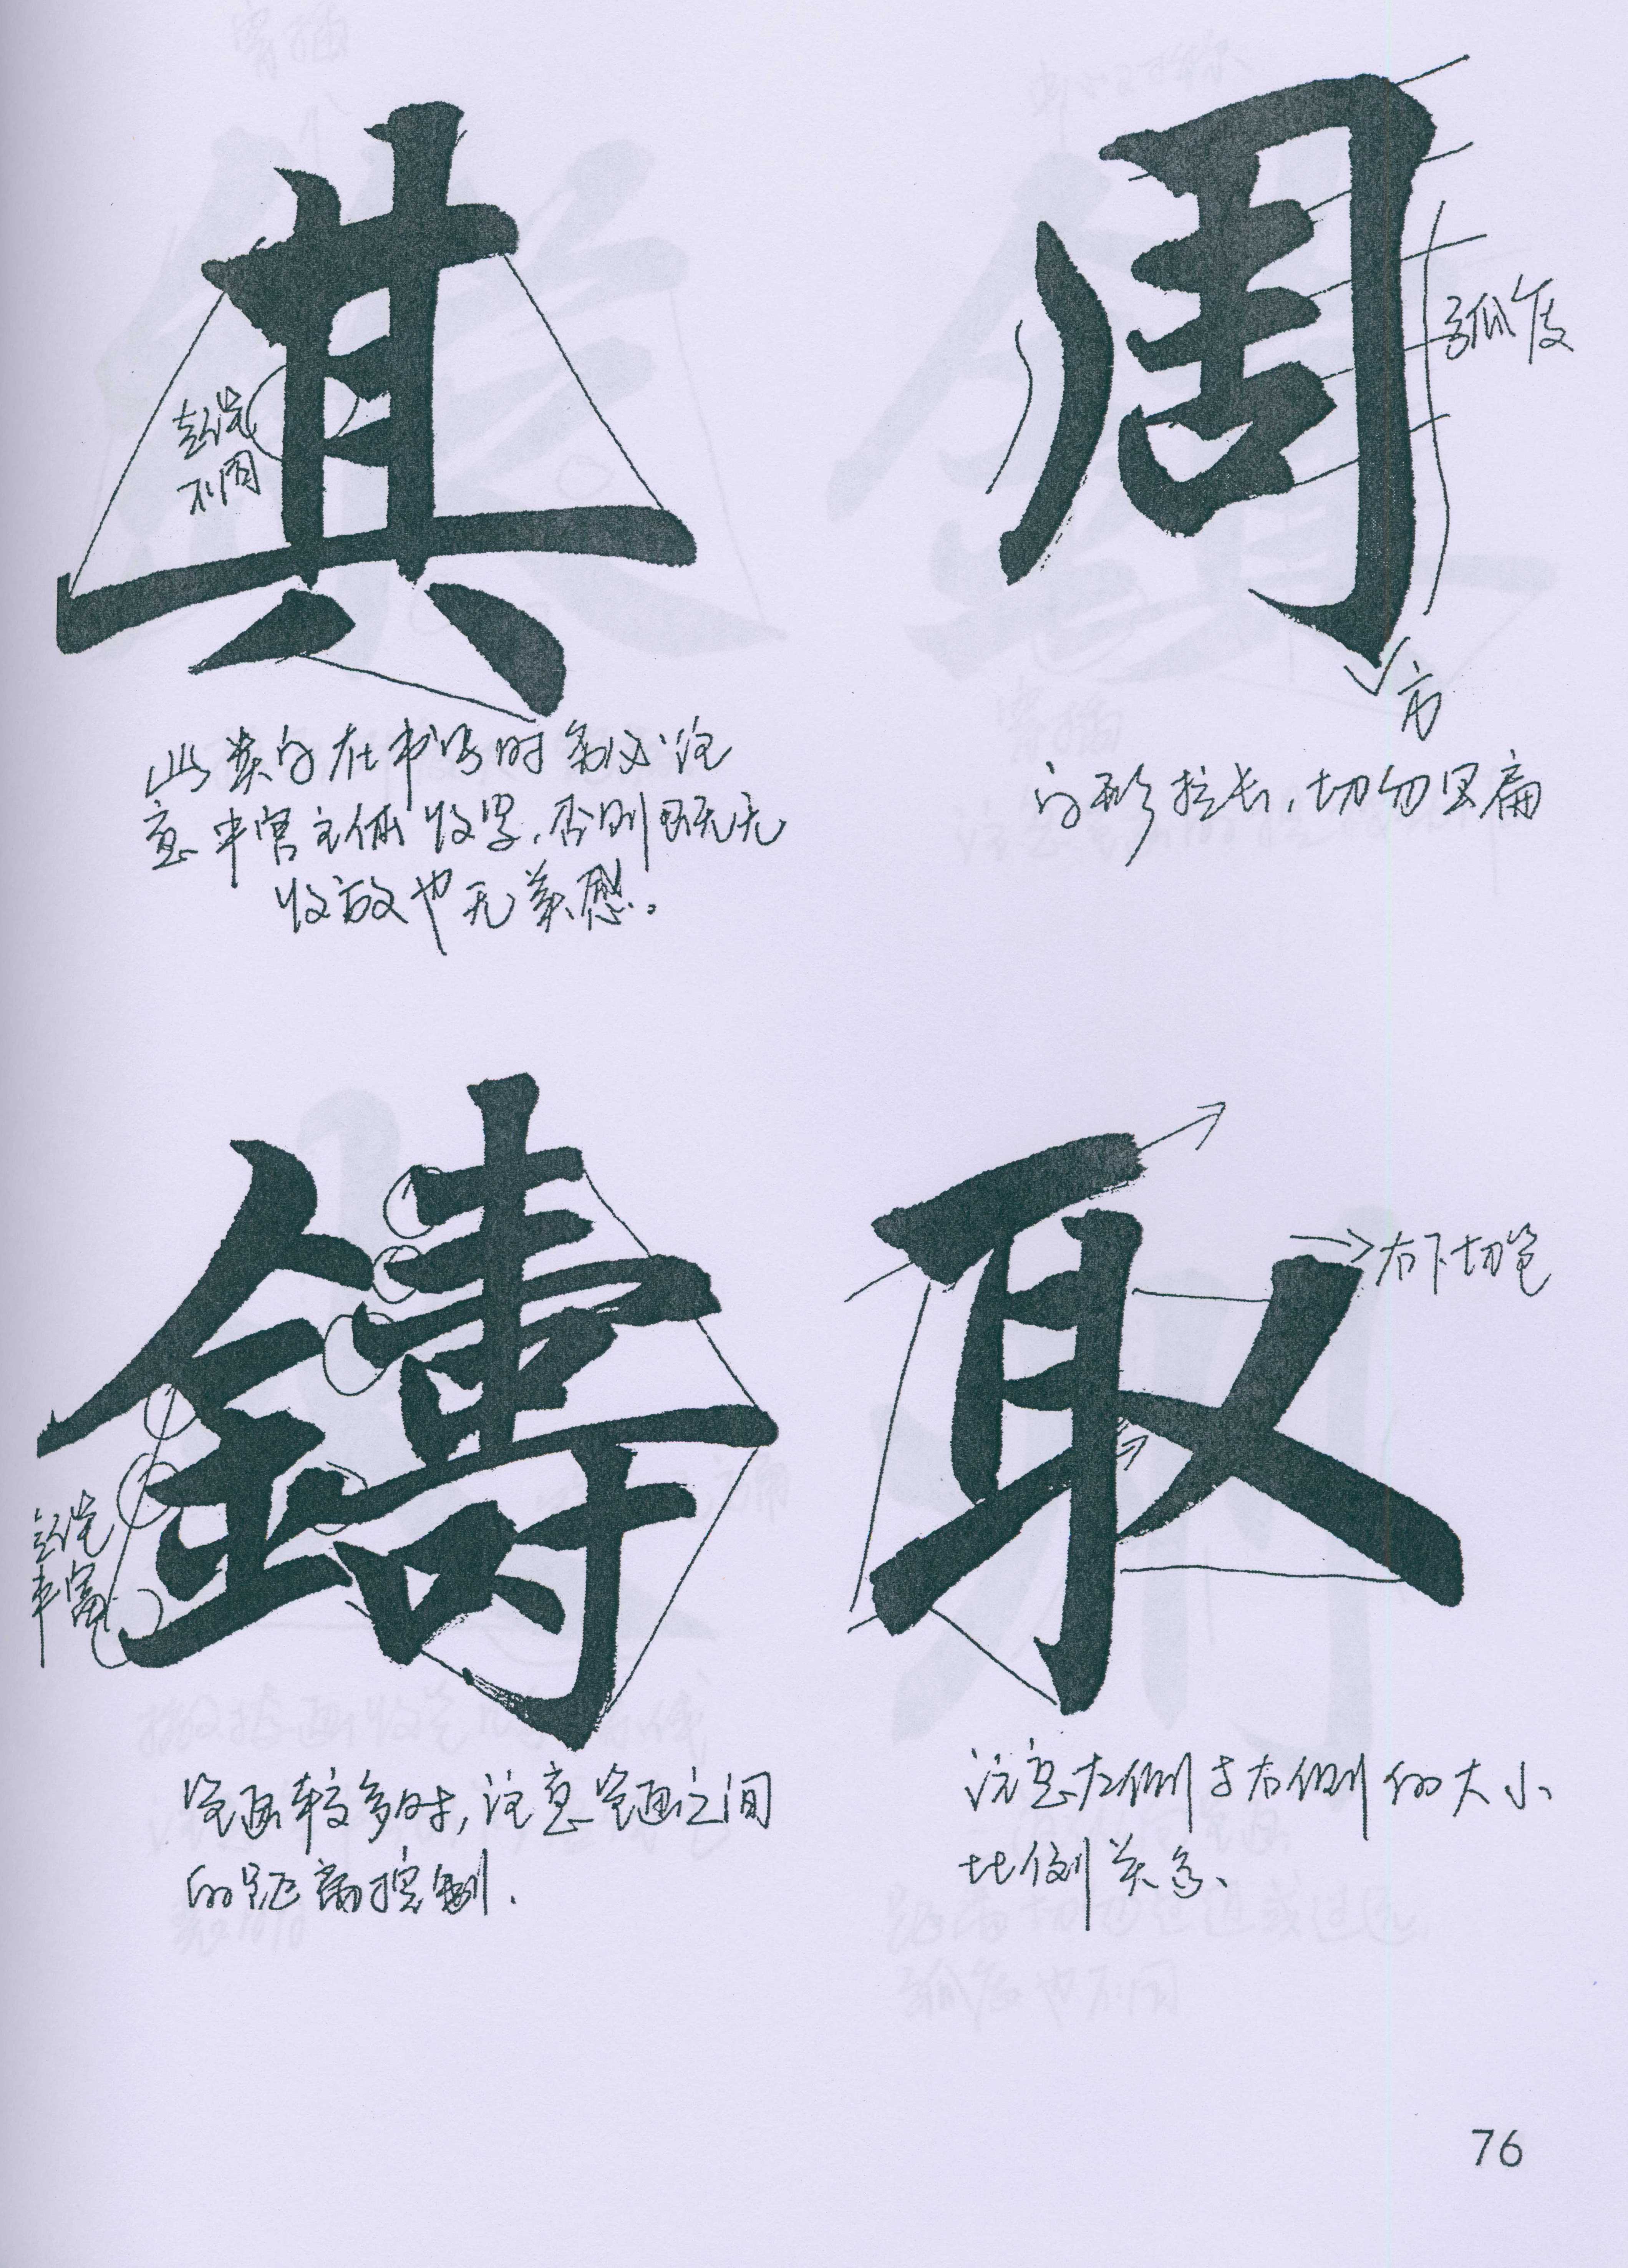 其
起笔
不同
此类字在书写时务必注
意中宫主体收紧，否则既无
收放也无美感。
周
弧度
方
字形拉长，切勿写扁
鑄
起笔
丰富
笔画较多时，注意笔画之间
的距离控制.
取
右下切笔
注意左侧与右侧的大小
比例关系、
76